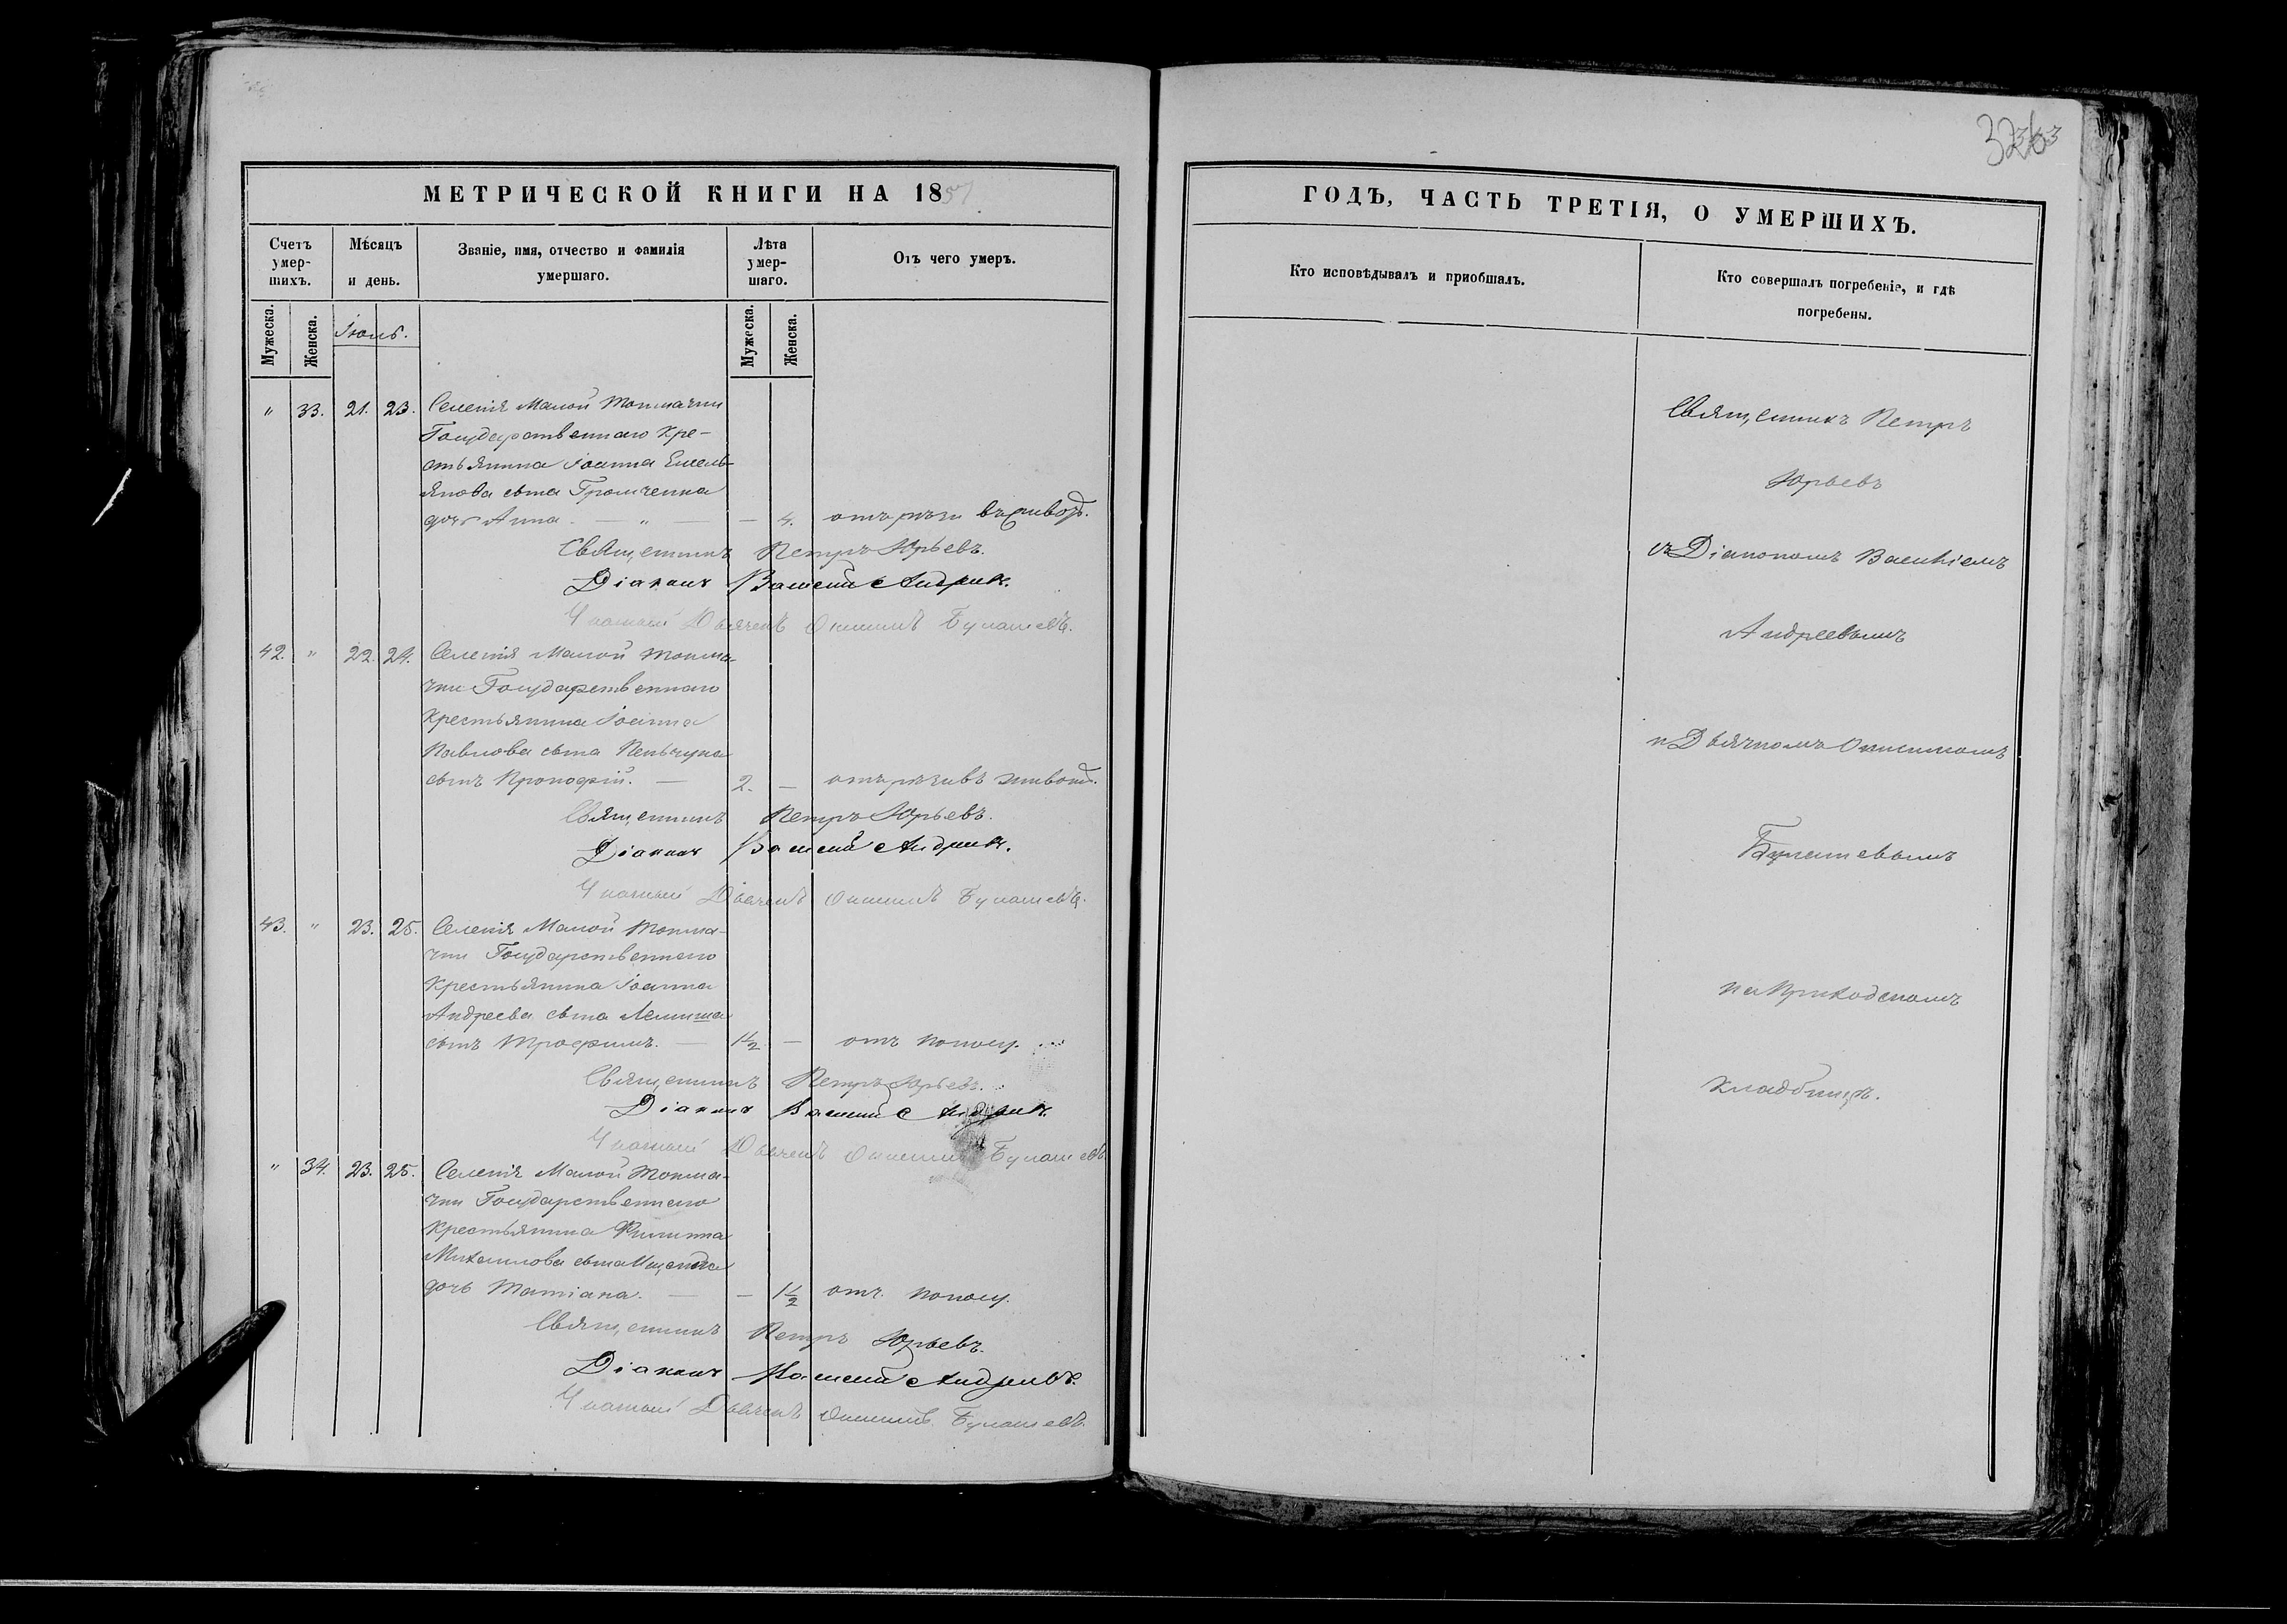 МЕТРИЧЕСКОЙ КНИГИ НА 1857
Счетъ умерших. Мѣсяцъ и день. Званіе, имя, отчество и фамилія умершаго. Лѣта умершаго. Отъ чего умеръ.
Мужеска. Женска. Іюль. Мужеска. Женска.
" 33. 21. 23. Селенія Малой Токмачки
Государственнаго Кре-
стьянина Іоанна Емель-
янова сына Громченка
дочь Анна. — " — — 4. отъ рези въ живот.
Священникъ Петръ Юрьевъ.
Діаконъ Василій Андреев.
Указный Дьячекъ Онисимъ Булашевъ.
42. " 22. 24. Селенія Малой Токма-
чки Государственнаго
Крестьянина Іоанна
Павлова сына
сынъ Прокофій. — 2. — отъ рези въ живот.
Священникъ Петръ Юрьевъ.
Діаконъ Василій Андреев.
Указный Дьячекъ Онисимъ Булашевъ.
43. " 23. 25. Селенія Малой Токма-
чки Государственнаго
Крестьянина Іоанна
Андреева сына Лемиша
сынъ Трофимъ. — 1½ — отъ поносу.
Священникъ Петръ Юрьевъ.
Діаконъ Василій Андреев.
Указный Дьячекъ Онисимъ Булашевъ.
" 34. 23. 25. Селенія Малой Токма-
чки Государственнаго
Крестьянина Филиппа
Михаилова сына
дочь Татіана. — — 1½ отъ поносу.
Священникъ Петръ Юрьевъ.
Діаконъ Василій Андреевъ.
Указный Дьячекъ Онисимъ Булашевъ.
ГОДЪ, ЧАСТЬ ТРЕТІЯ, О УМЕРШИХЪ.
Кто исповѣдывалъ и пріобщалъ. Кто совершалъ погребеніе, и гдѣ
погребены.
Священникъ Петръ
Юрьевъ
съ Діакономъ Василіемъ
Андреевымъ
и Дьячкомъ Онисимомъ
Булашевымъ
на Приходскомъ
кладбищѣ.